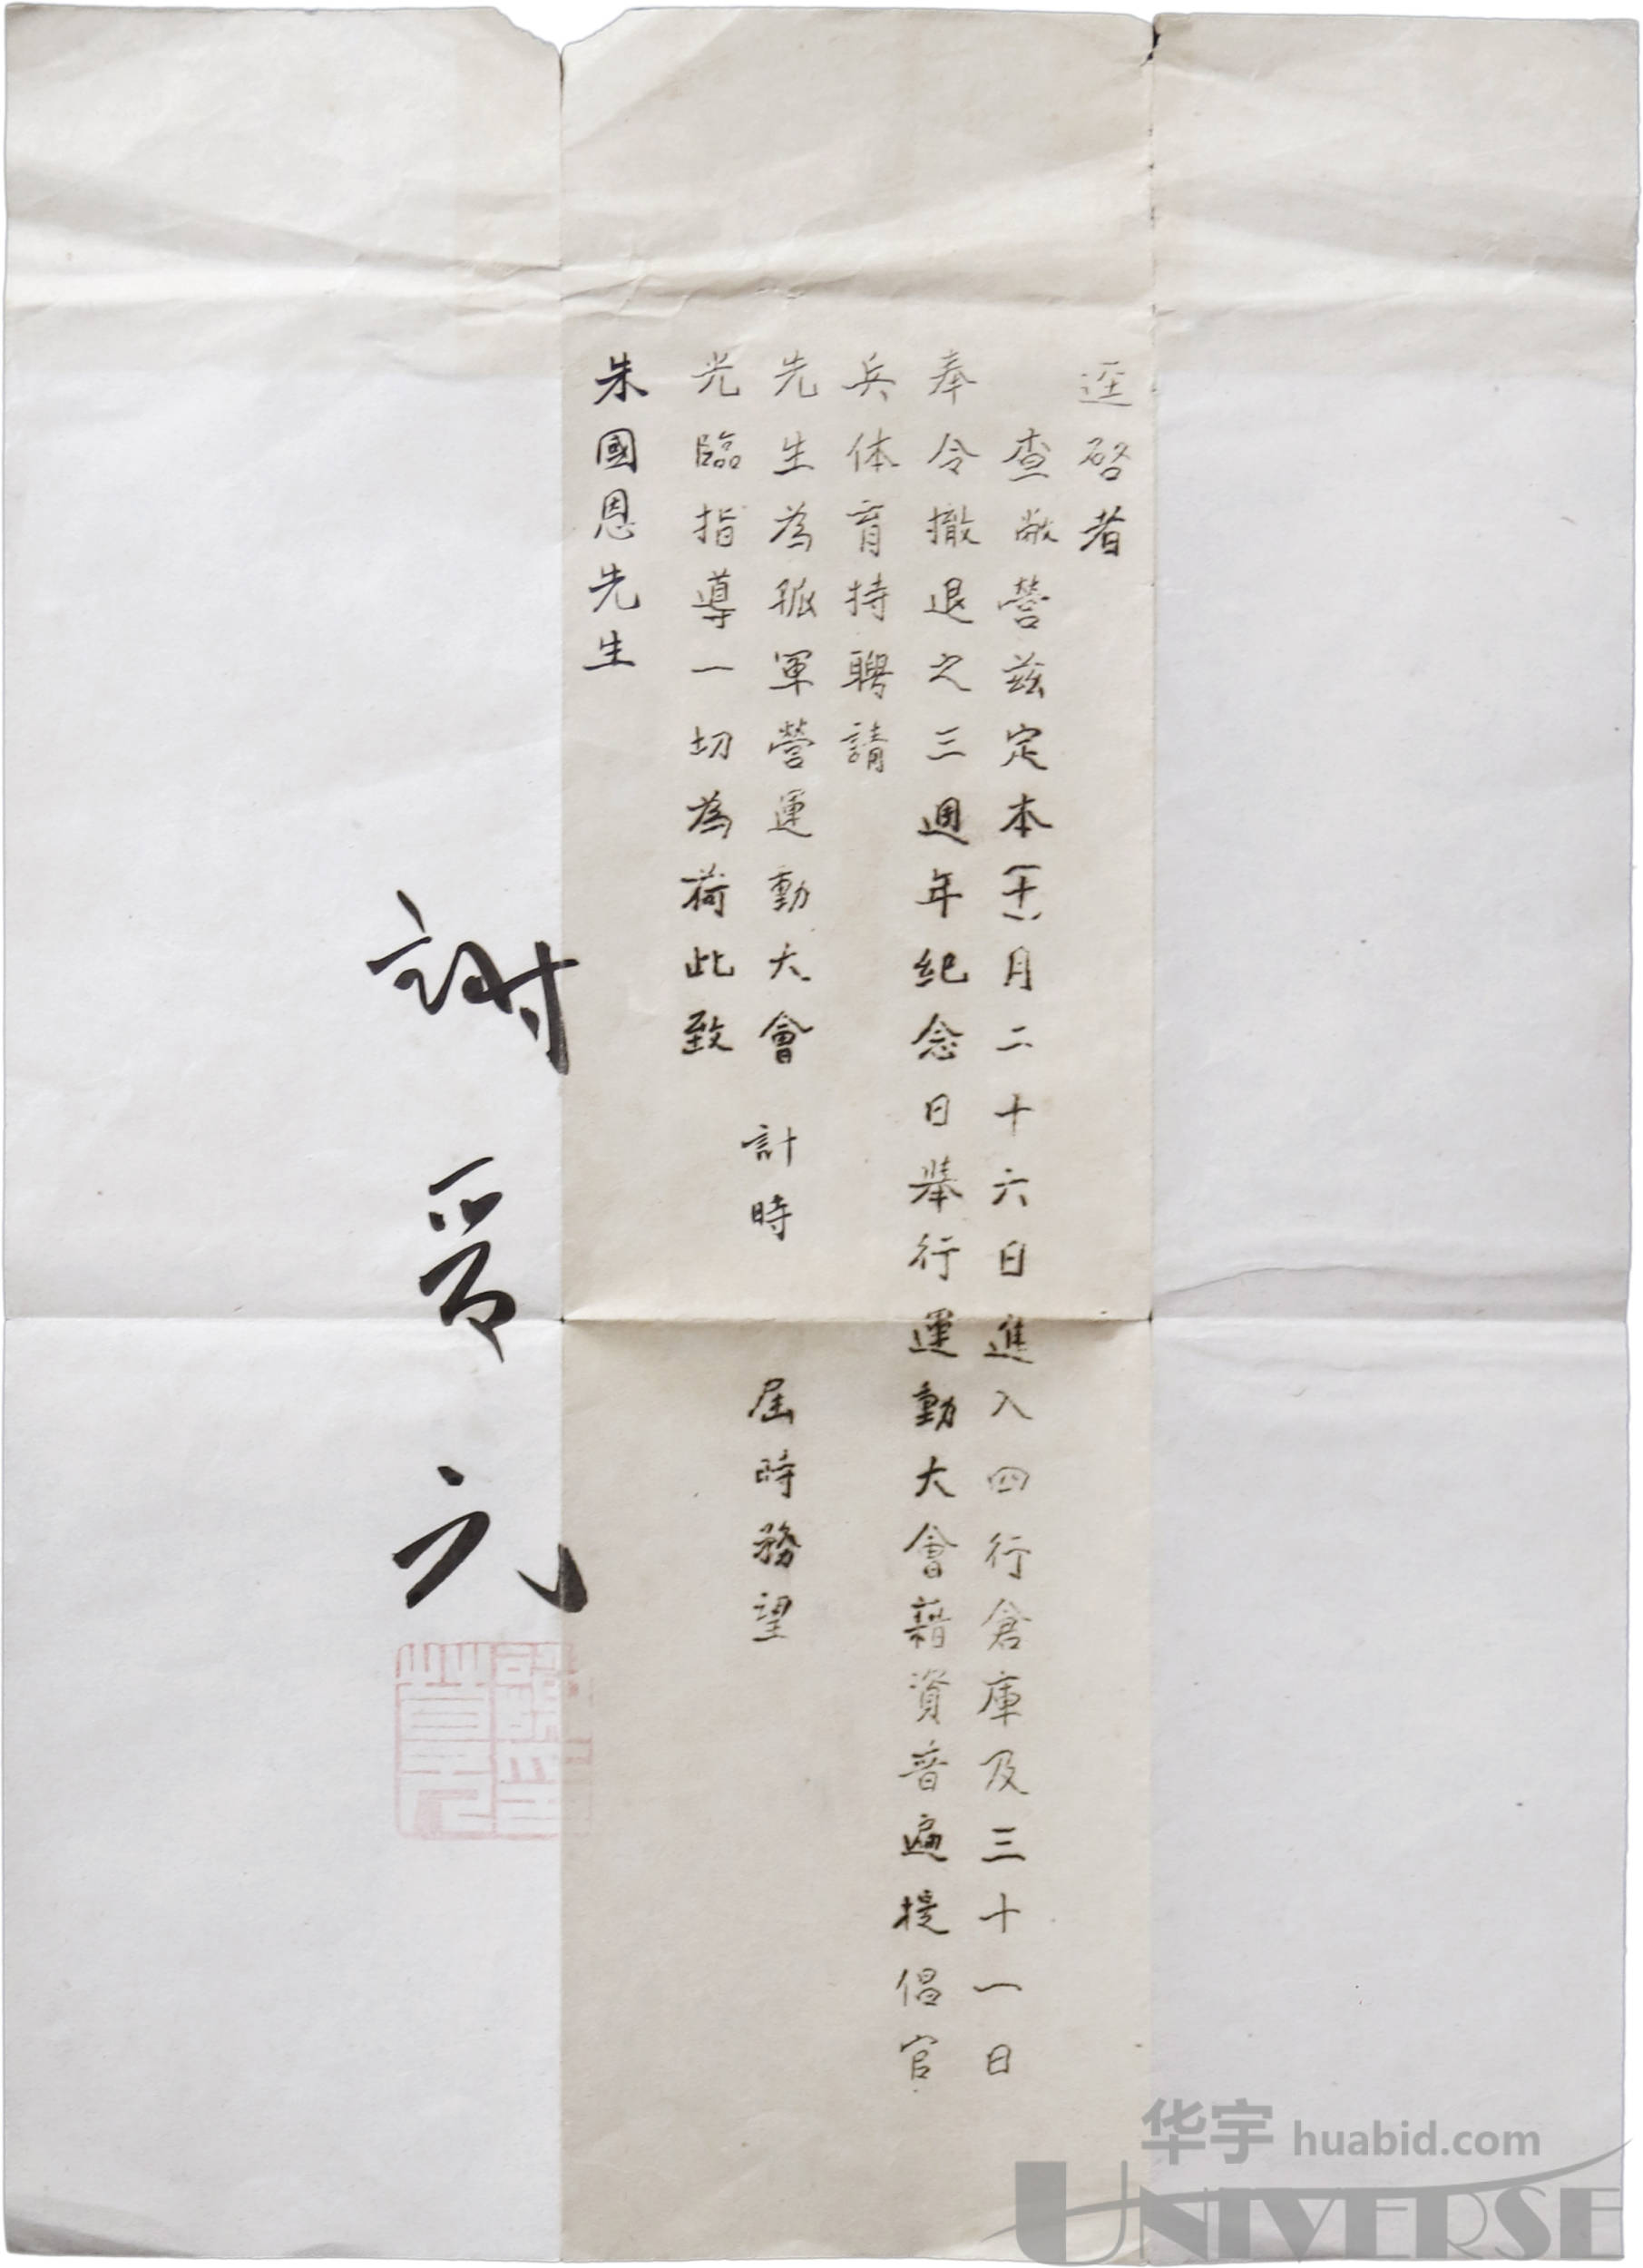 逕啓者
查敝營茲定本(十)月二十六日進入四行倉庫及三十一日
奉令撤退之三週年紀念日舉行運動大會藉資普遍提倡官
兵体育特聘請
先生為孤軍營運動大會 計時 屆時務望
光臨指導一切為荷此致
朱國恩先生
謝晉元
謝晉元
华宇 huabid.com
UNIVERSE